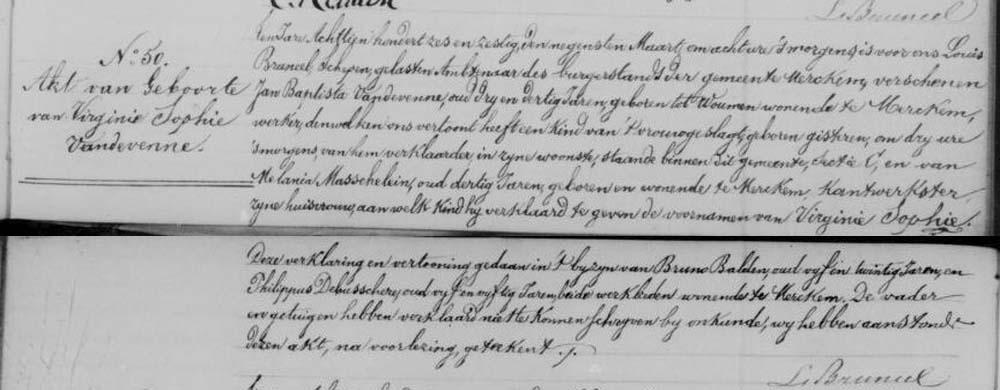 L. Bruneel
N.º 50.
Akt van Geboorte
van Virginie Sophie
Vandevenne.
ten Jare Achttijn hondert zes en zestig, den negensten Maart, om acht ure 's morgens, is voor ons Louis
Bruneel, schepen, gelasten Ambtenaar des burgerstands der gemeente Merckem, verschenen
Jan Baptista Vandevenne, oud dry en dertig Jaren, geboren tot Woumen wonende te Merckem,
werker, denwelken ons vertoont heeft een Kind van 't vrouwge slagt, geboren gisteren, om dry ure
's morgens, van hem verklaarder, in zyne woonste, staande binnen dit gemeente, sectie C, en van
Melania Masschelein, oud dertig Jaren, geboren en wonende te Merckem, Kantwerkster,
zyne huisvrouw, aan welk Kind hy verklaard te geven de voornamen van Virginie Sophie.
Deze verklaring en vertooning gedaan in 't byzyn van Bruno Balden, oud vyf en twintig Jaren, en
Philippus Debusschere, oud vyf en vyftig Jaren, beide werklieden wonende te Merckem. De vader
en getuigen hebben verklaard niet te konnen schryven by onkunde, wy hebben aanstonds
dezen akt, na voorlezing, geteekent ./.
L. Bruneel